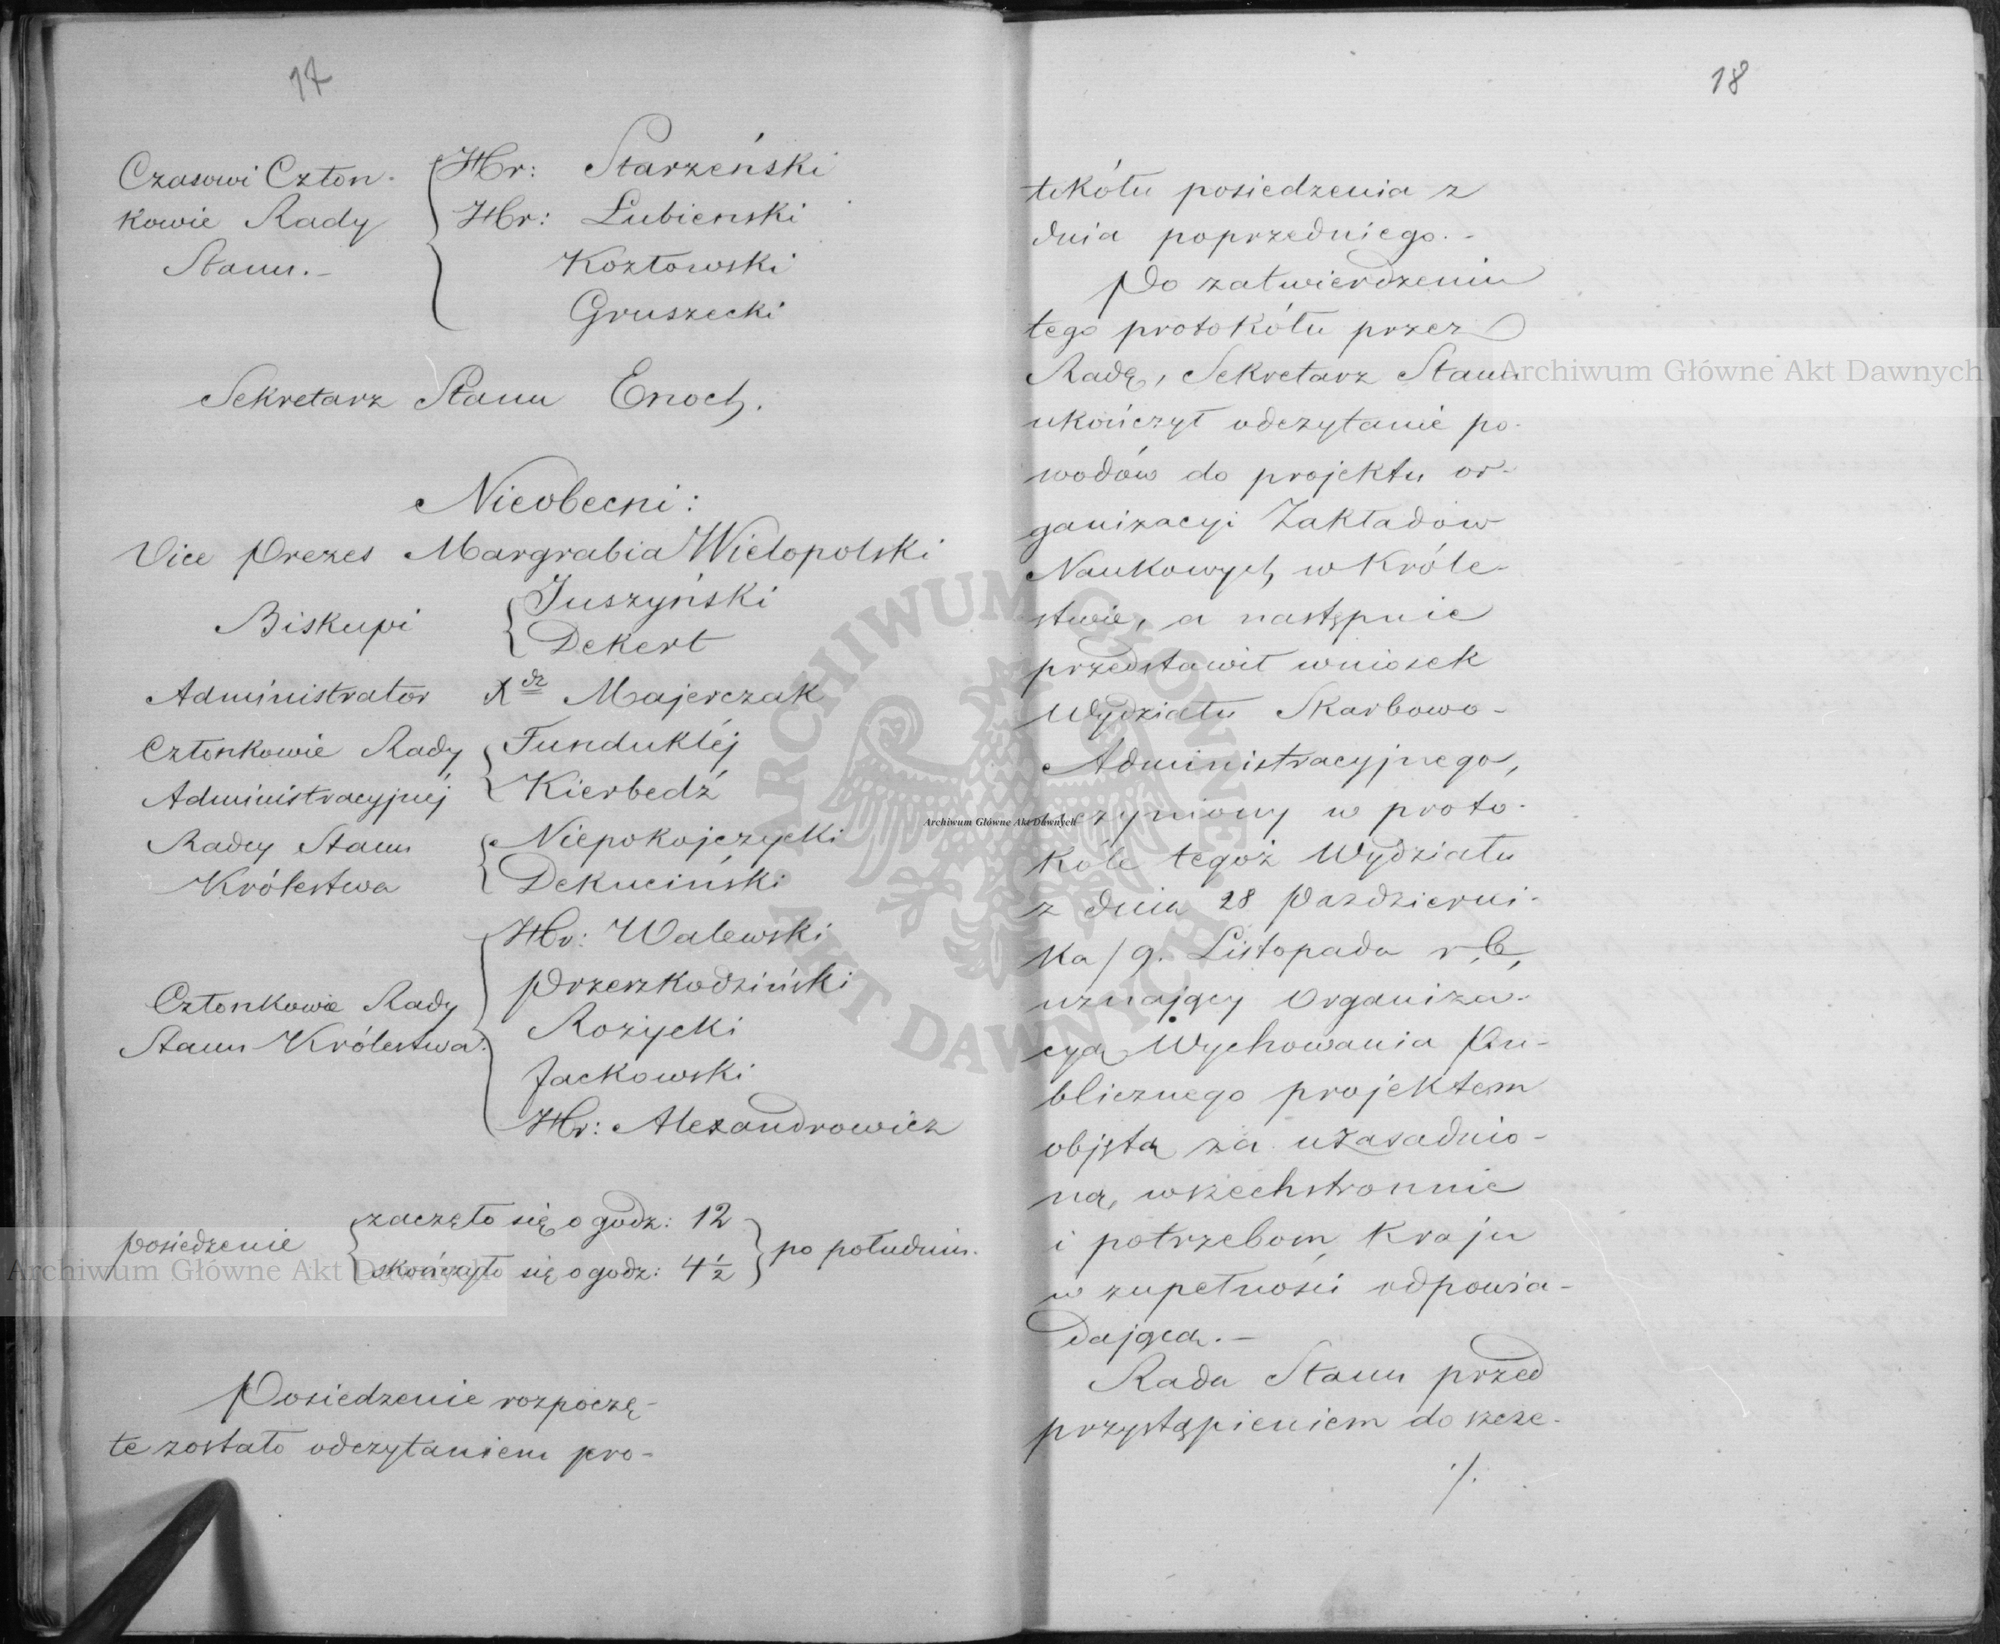 17
Czasowi Człon-
kowie Rady
Stanu.-
Hr: Starzeński
Hr: Łubienski
Kozłowski
Gruszecki
Sekretarz Stanu Enoch.
Nieobecni:
Vice Prezes Margrabia Wielopolski
Biskupi
Juszyński
Dekert
Administrator Xdz Majerczak
Członkowie Rady
Administracyjnéj
Funduklej
Kierbedź
Radcy Stanu
Królestwa
Niepokojczycki
Dekuciński
Członkowie Rady
Stanu Królestwa.
Hr: Walewski
Przeszkodziński
Rożycki
Jackowski
Hr: Alexandrowicz
Posiedzenie
zaczęło się o godz: 12
skończyło się o godz: 4 1/2
po południu.
Posiedzenie rozpoczę-
te zostało odczytaniem pro-
18
tokółu posiedzenia z
dnia poprzedniego.-
Po zatwierdzeniu
tego protokółu przez
Radę, Sekretarz Stanu
ukończył odczytanie po-
wodów do projektu or-
ganizacyi Zakładów
Naukowych w Króle-
stwie, a następnie
przedstawił wniosek
Wydziału Skarbowo-
Administracyjnego,
uczyniony w proto-
kóle tegoż Wydziału
z dnia 28 Październi-
ka/9. Listopada r. b.,
uznający Organiza-
cyą Wychowania Pu-
blicznego projektem
objętą za uzasadnio-
ną, wszechstronnie
i potrzebom kraju
w zupełności odpowia-
dającą.-
Rada Stanu przed
przystąpieniem do szcze-
./.
Archiwum Główne Akt Dawnych
Archiwum Główne Akt Dawnych
Archiwum Główne Akt Dawnych
ARCHIWUM GŁÓWNE AKT DAWNYCH